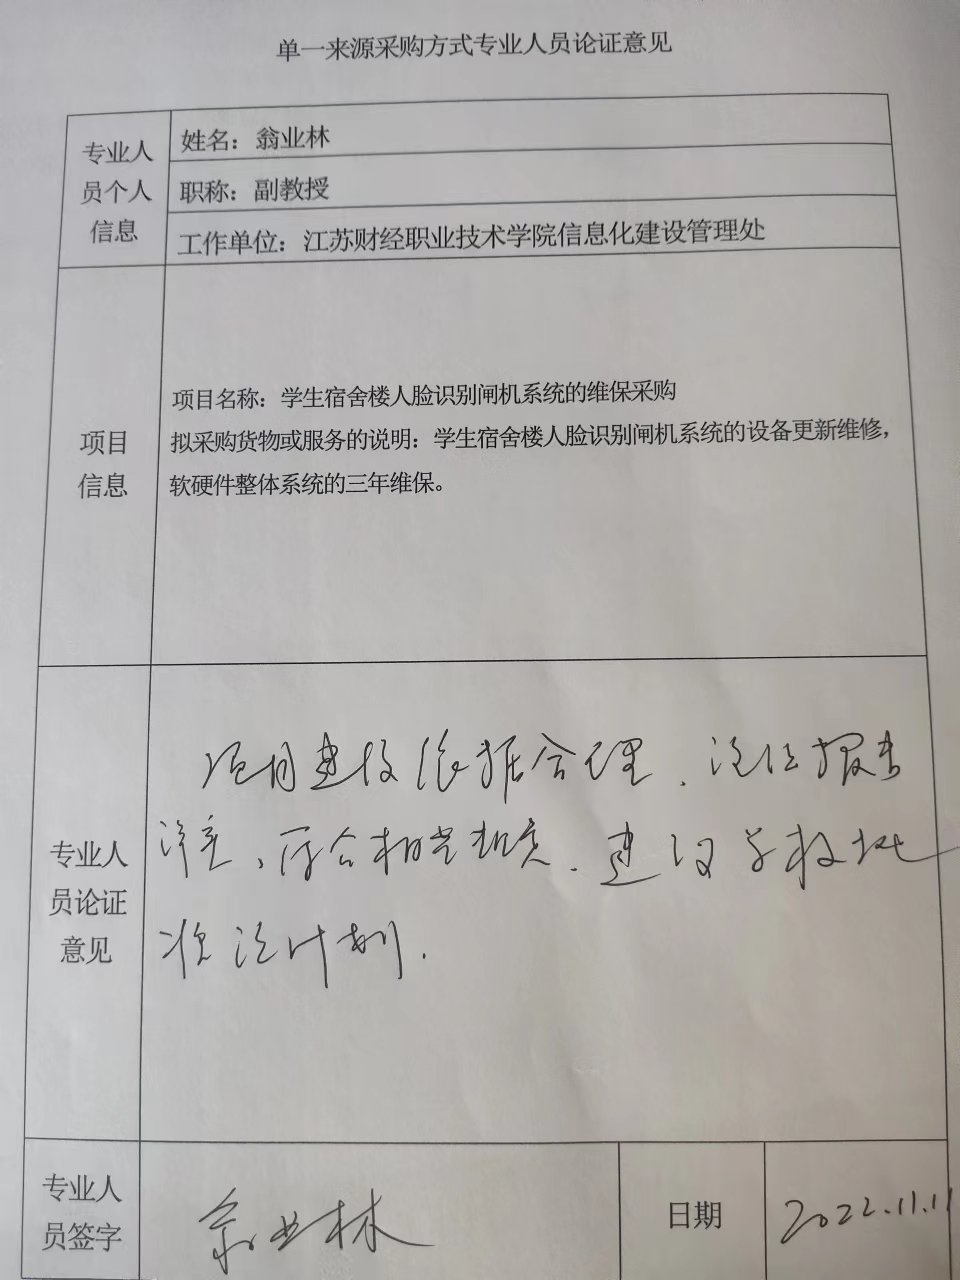 单一来源采购方式专业人员论证意见
专业人
员个人
信息
姓名：翁业林
职称：副教授
工作单位：江苏财经职业技术学院信息化建设管理处
项目
信息
项目名称：学生宿舍楼人脸识别闸机系统的维保采购
拟采购货物或服务的说明：学生宿舍楼人脸识别闸机系统的设备更新维修，
软硬件整体系统的三年维保。
专业人
员论证
意见
项目建设依据合理．论证报告
详实、符合相关规定．建议学校批
准该计划．
专业人
员签字
翁业林
日期
2022.11.11